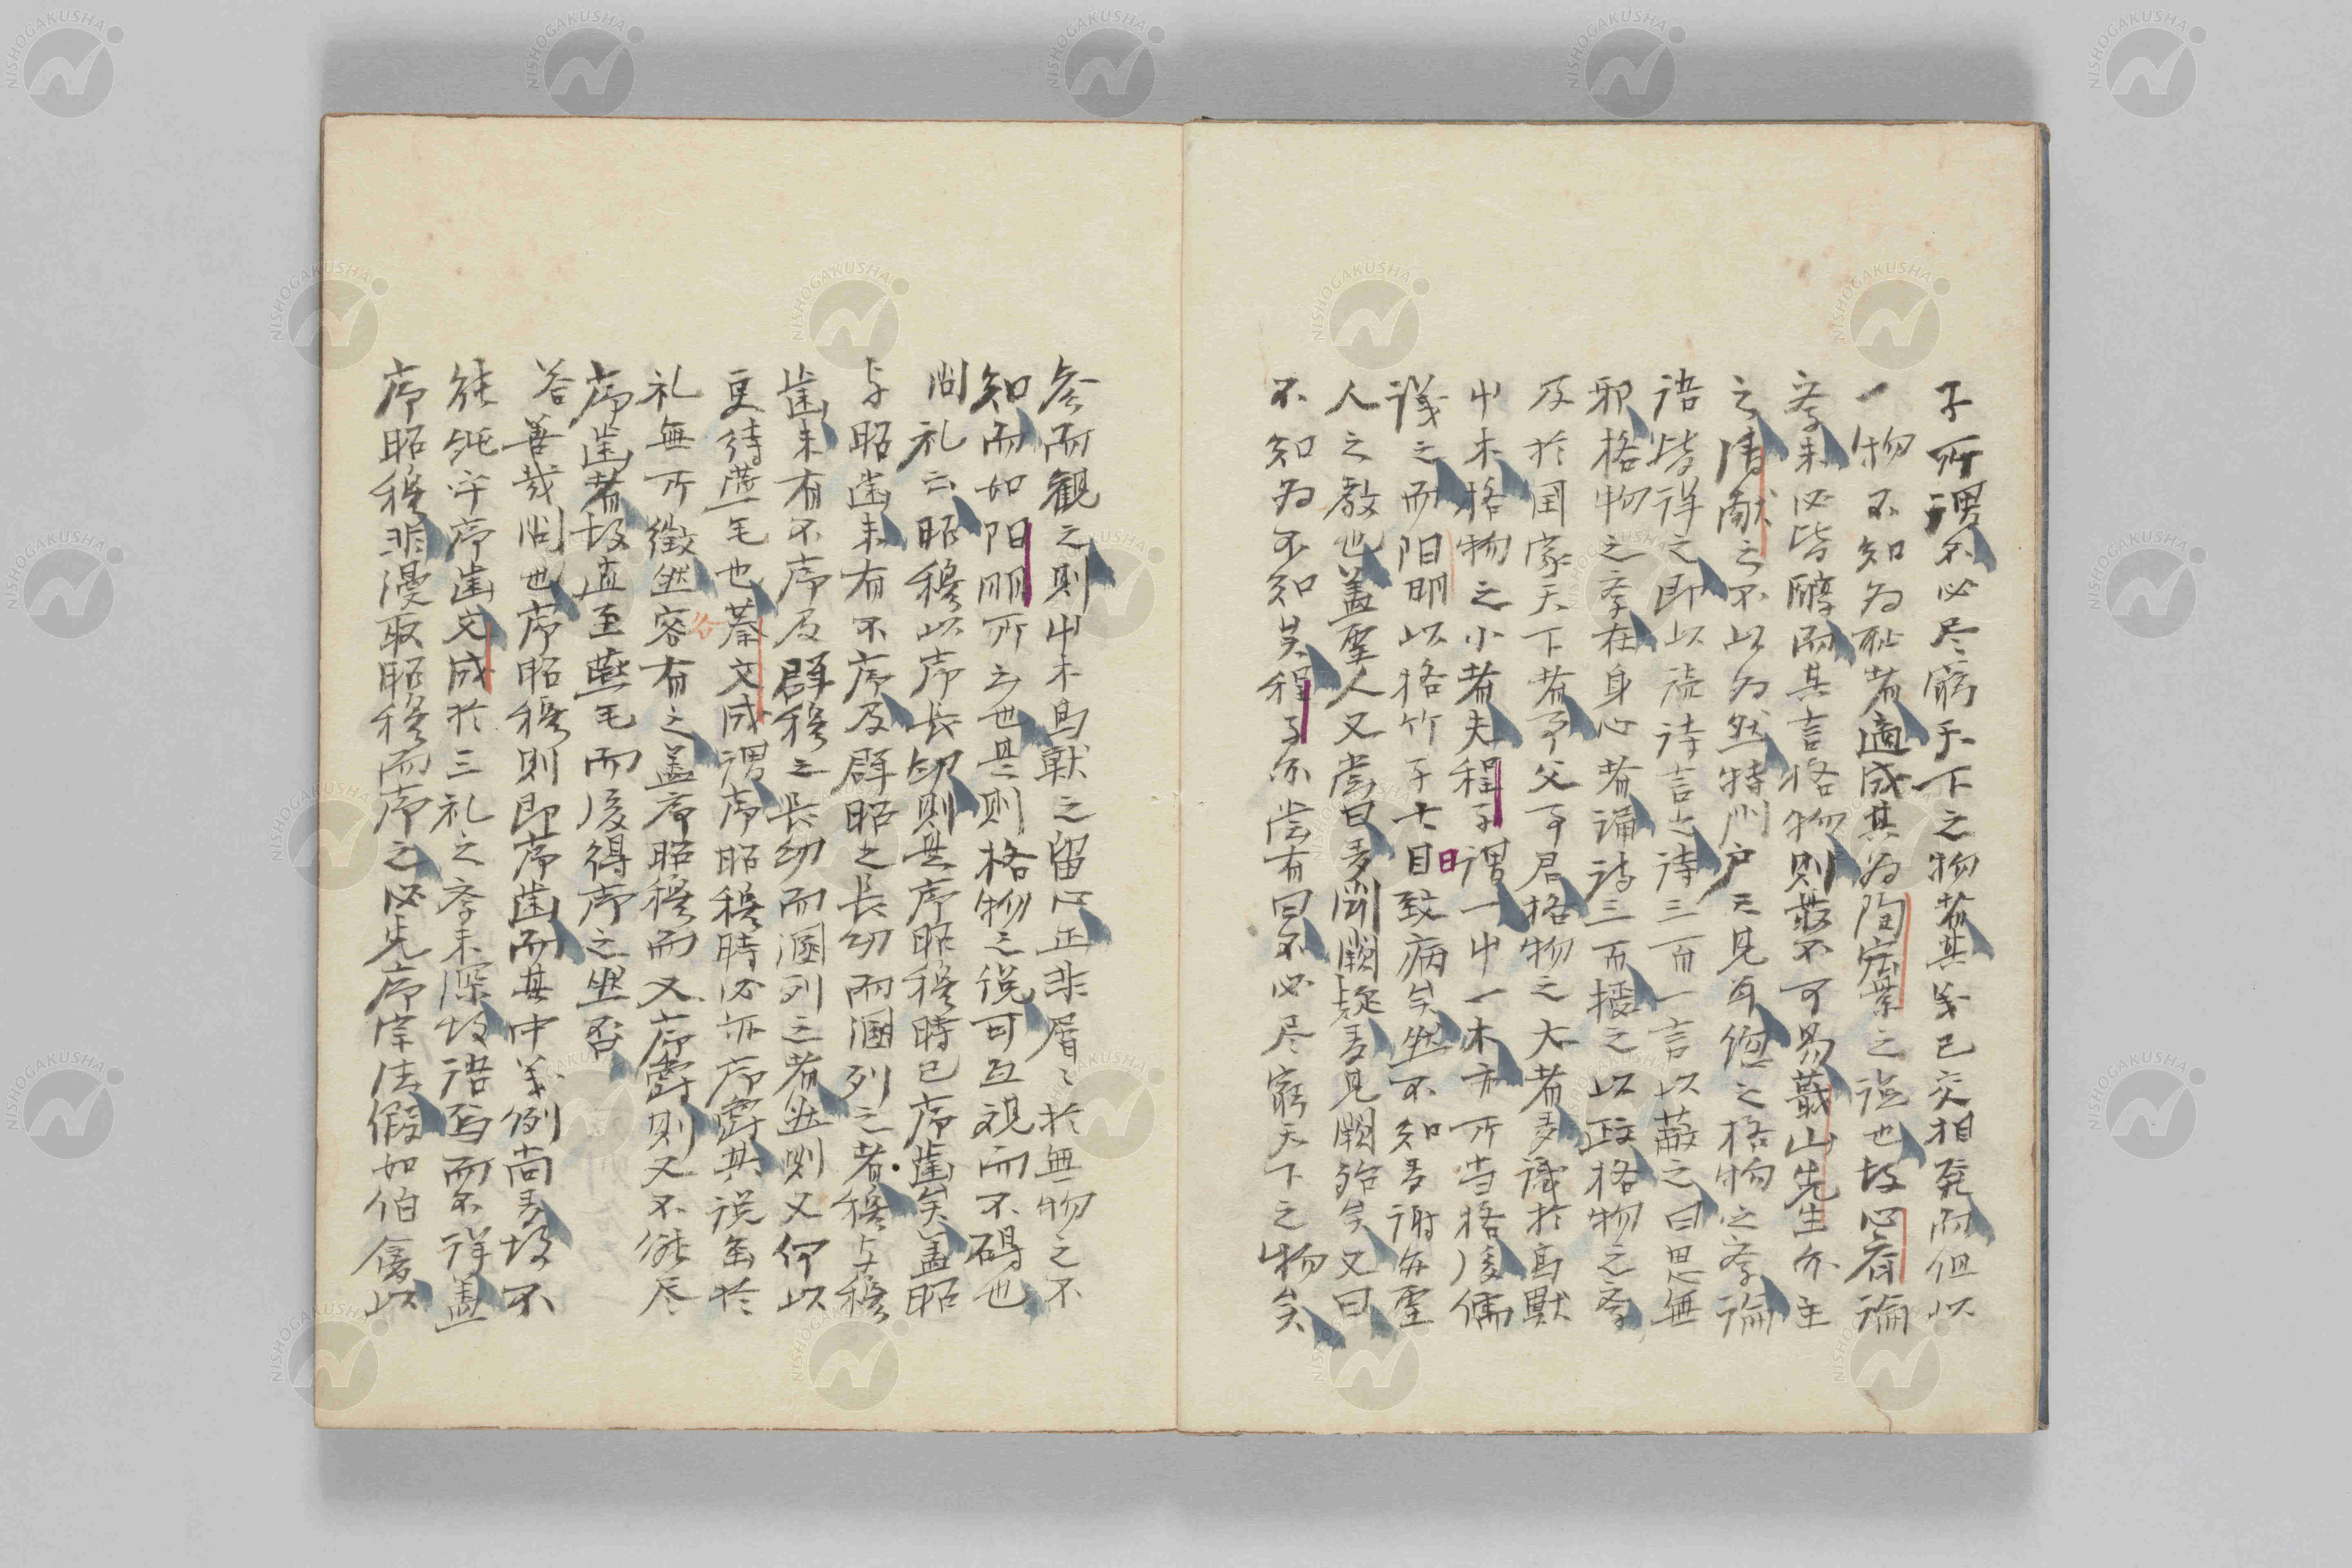 子所謂不必尽窮天下之物者其義已交相発而但以
一物不知為恥者適成其為陶宏景之説也故心斎論
斈未必皆醇而其言格物則最不可易蕺山先生亦主
之清献之不以為然特門戸之見耳総之格物之斈論
語皆詳之即以読詩言之詩三百一言以蔽之曰思無
邪格物之斈在身心者誦詩三百授之以政格物之斈
及於国家天下者事父事君格物之大者多識於鳥獣
艸木格物之小者夫程子謂一艸一木亦所当格後儒
議之而阳明以格竹子七日致病矣然不知多識亦聖
人之教也盖聖人又嘗曰多聞闕疑多見闕殆矣又曰
不知為不知矣程子亦嘗有曰不必尽窮天下之物矣
参而観之則艸木鳥獣之留心正非屑々於無物之不
知而如阳明所云也是則格物之説可互視而不碍也
問礼云昭穆以序長幼則其序昭穆時已序歯矣盖昭
与昭歯未有不序及群昭之長幼而溷列之者穆与穆
歯未有不序及群穆之長幼而溷列之者然則又何以
更待燕毛也蔡文成謂序昭穆時必亦序爵其説缶於
礼無所徴然容有之盖序昭穆而又序爵則又不能尽
序歯者故直至燕毛而後得序之然否
答善哉問也序昭穆則即序歯而其中義例尚多故不
能純乎序歯文成於三礼之斈未深故語焉而不詳盖
序昭穆非漫取昭穆而序之必先序宗法假如伯禽以
NISHOGAKUSHA